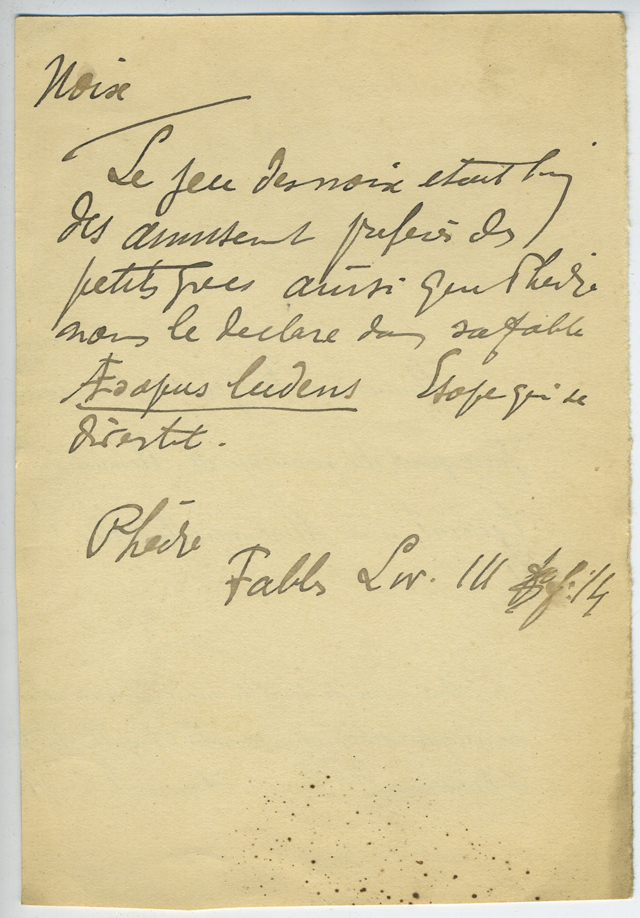 Noix
Le jeu des noix etait l'un
des amusent preferés des
petits grecs ainsi que Phèdre
nous le declare dans sa fable
Æsopus ludens Esope qui se
divertit.
Phèdre
Fables Liv. III 14